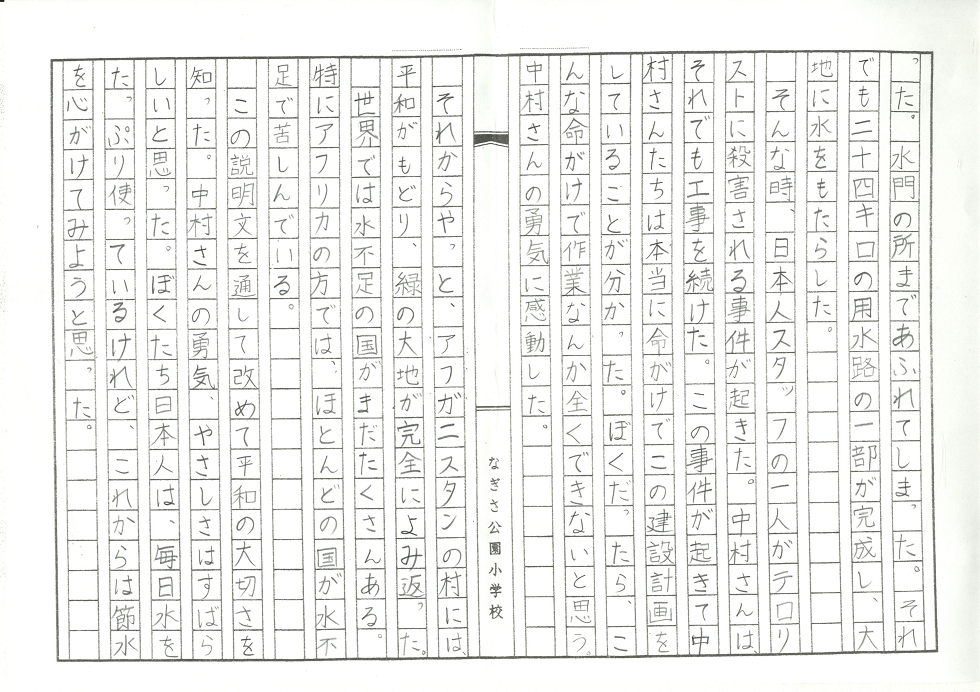 った。水門の所まであふれてしまった。それ
でも二十四キロの用水路の一部が完成し、大
地に水をもたらした。
そんな時、日本人スタッフの一人がテロリ
ストに殺害される事件が起きた。中村さんは、
それでも工事を続けた。この事件が起きて中
村さんたちは本当に命がけでこの建設計画を
していることが分かった。ぼくだったら、こ
んな命がけで作業なんか全くできないと思う。
中村さんの勇気に感動した。
なぎさ公園小学校
それからやっと、アフガニスタンの村には、
平和がもどり、緑の大地が完全によみ返った。
世界では水不足の国がまだたくさんある。
特にアフリカの方では、ほとんどの国が水不
足で苦しんでいる。
この説明文を通して改めて平和の大切さを
知った。中村さんの勇気、やさしさはすばら
しいと思った。ぼくたち日本人は、毎日水を
たっぷり使っているけれど、これからは節水
を心がけてみようと思った。